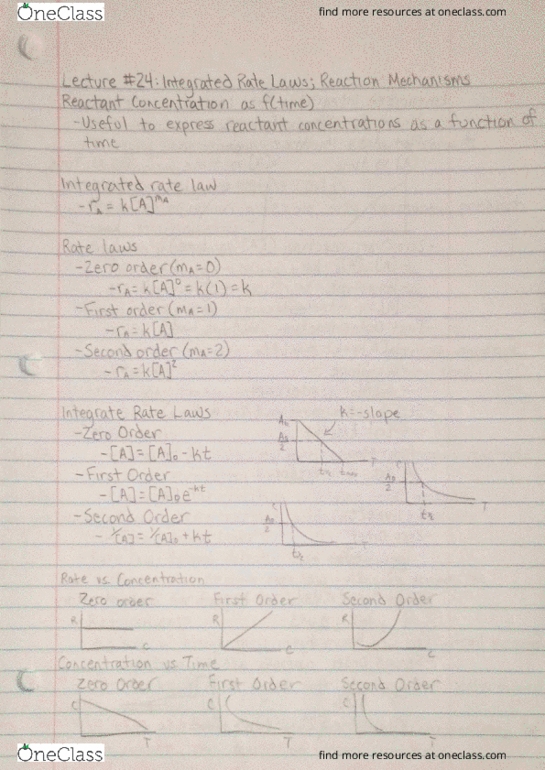 OneClass
find more resources at oneclass.com
Lecture #24: Integrated Rate Laws; Reaction Mechanisms
Reactant Concentration as f(time)
-Useful to express reactant concentrations as a function of
time
Integrated rate law
-rₐ = k[A]^mₐ
Rate laws
-Zero order (mₐ=0)
-rₐ= k[A]⁰ = k(1) = k
-First order (mₐ=1)
-rₐ=k[A]
-Second order (mₐ=2)
-rₐ=k[A]²
Integrate Rate Laws
k=-slope
-Zero Order
-[A]=[A]₀ - kt
-First Order
-[A]=[A]₀e^-kt
-Second Order
- 1/[A] = 1/[A]₀ + kt
T
T
Rate vs Concentration
Zero order First Order Second Order
R R R
C C C
Concentration vs Time
Zero Order First Order Second Order
C C C
T T T
OneClass
find more resources at oneclass.com